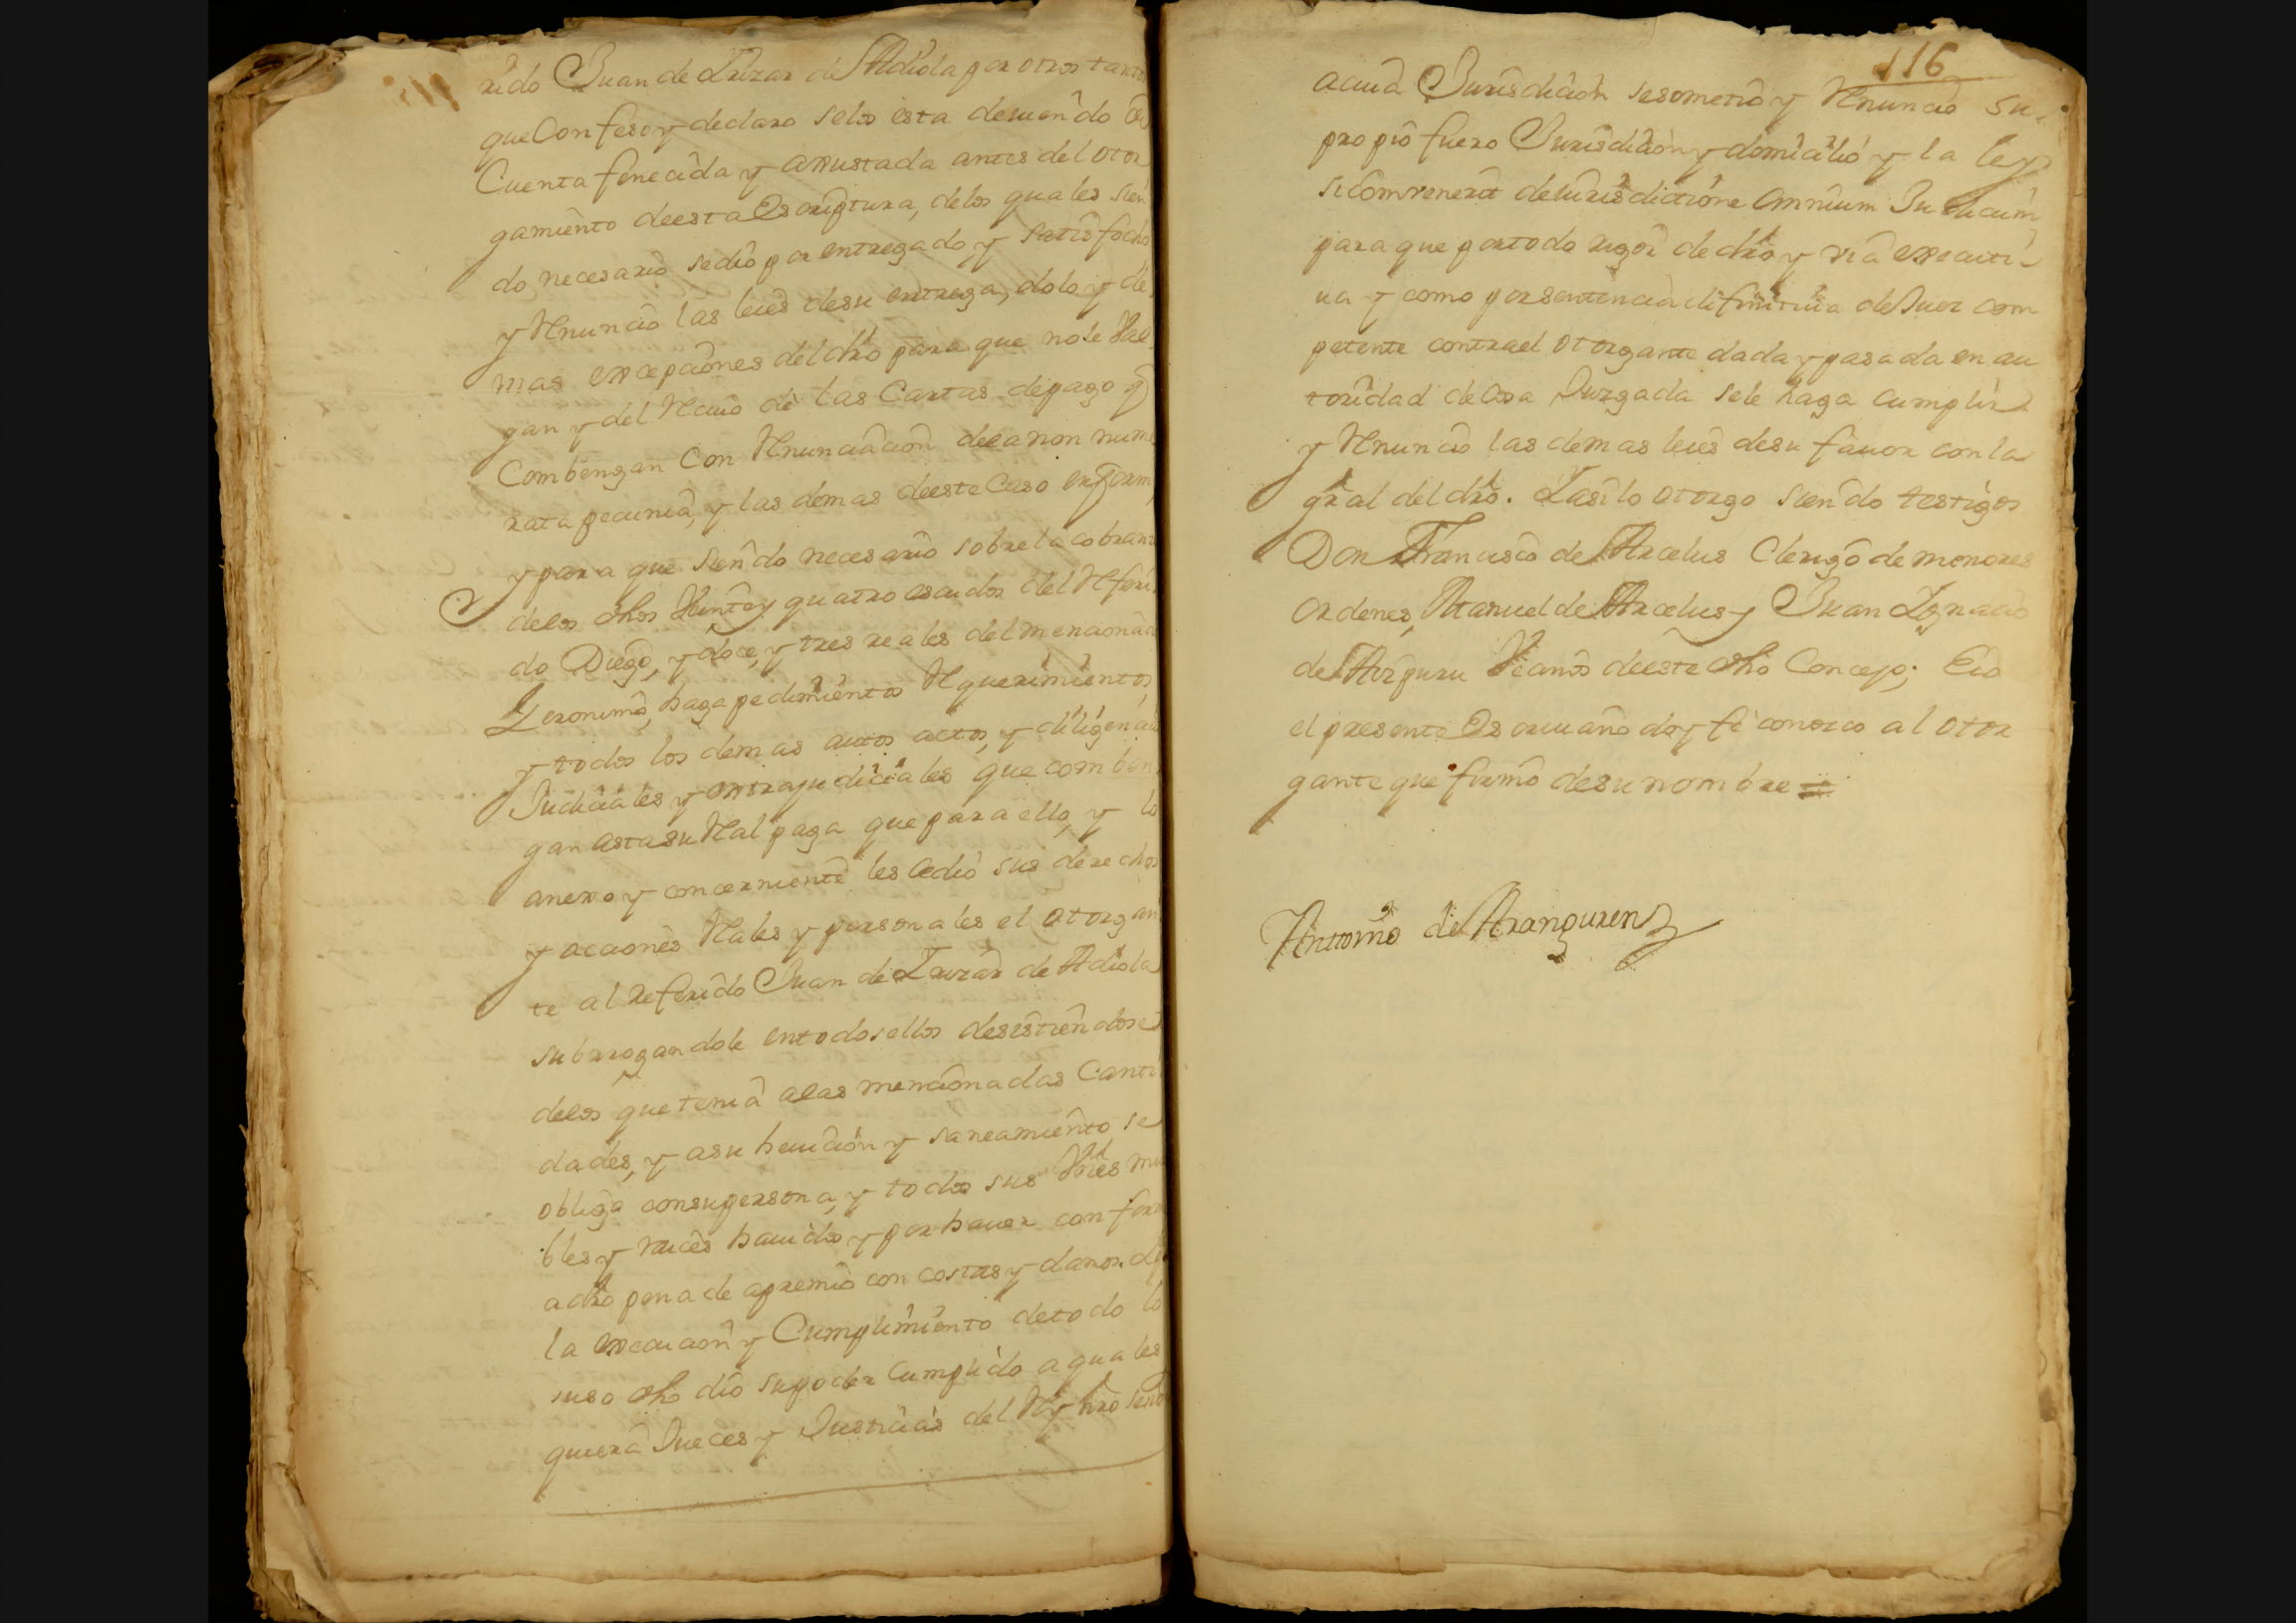 rido Juan de Luzar de Adiola por otros tanto
que Confeso y declaro selos esta deuiendo
Cuenta fenecida y axustada antes del otor
gamiento deesta Escriptura, delos quales sien
do necesario sedio por entregado, y satisfecho
y Renuncio las leies desu entrega, dolo y de
mas excepciones del dro para que nole Val
gan y del Reciuo de las Cartas depago q
Combengan Con Renunciacion dela non nume
rata pecunia, y las demas deeste Caso enforma
y para que siendo necesario sobre la cobranz
delos dhos Veinte y quatro escudos del Referi
do Diego, y doce, y tres reales del menciona
Geronimo, haga pedimientos Requerimientos,
y todos los demas autos actos, y diligencia
Judiciales y extrajudiciales que comben
gan asta su Real paga que para ello, y lo
anexo y concerniente les Cedio sus derechos
y acciones Reales y personales el otorgan
te al referido Juan de Luzar de Adiola
subrrogandole entodos ellos desistiendose
delos que tenia alas mencionadas Canti
dades, y asu heuicion y saneamiento se
obliga consupersona, y todos sus Vnes mue
bles y raices hauidos y por hauer con forme
adro pena de apremio con costas y danos
la execucion y Cumplimiento detodo lo
suso dho dio supoder Cumplido a quales
quiera Jueces y Justicias del Rey nro señor
116
acuia Jurisdicion sesometio y Renuncio su
propio fuero Jurisdicion y domicilio y la ley
si Comvenerit de Iurisdictione Omnium Judicum
para que portodo rigor de dro y via executi
ua y como por sentencia difinitiua de Juez com
petente contra el otorgante dada y pasada en au
toridad de Cosa Juzgada sele haga cumplir
y Renuncio las demas leies desu fauor con la
gral del dro. Y asi lo otorgo siendo testigos
Don Francisco de Arcelus Clerigo de menores
ordenes, Manuel de Arcelus y Juan Ignacio
de Aizpuru Vecinos deeste dho Concejo; E io
el presente Escriuano doy fe conozco al otor
gante que firmo desu nombre =
Anttonio de Aranguren